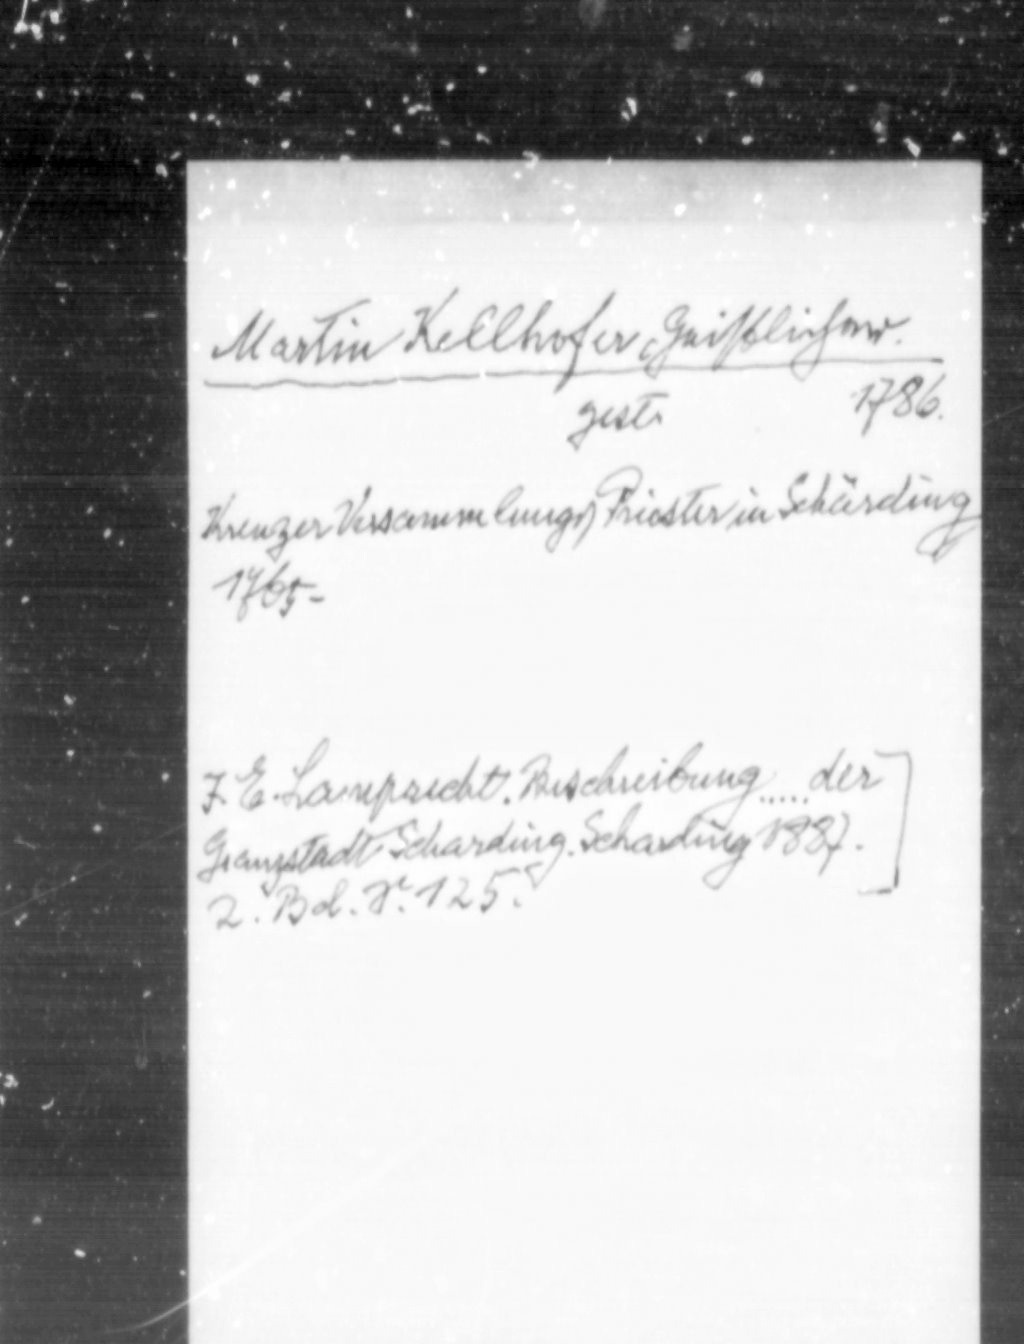 Martin Kellhofer, Geistlicher.
gest. 1786.
Krenzer Versammlungs Priester in Schärding
1765-
J. E. Lamprecht. Beschreibung ..... der
Granzstadt Scharding. Scharding 1887.
2. Bd. S. 125.